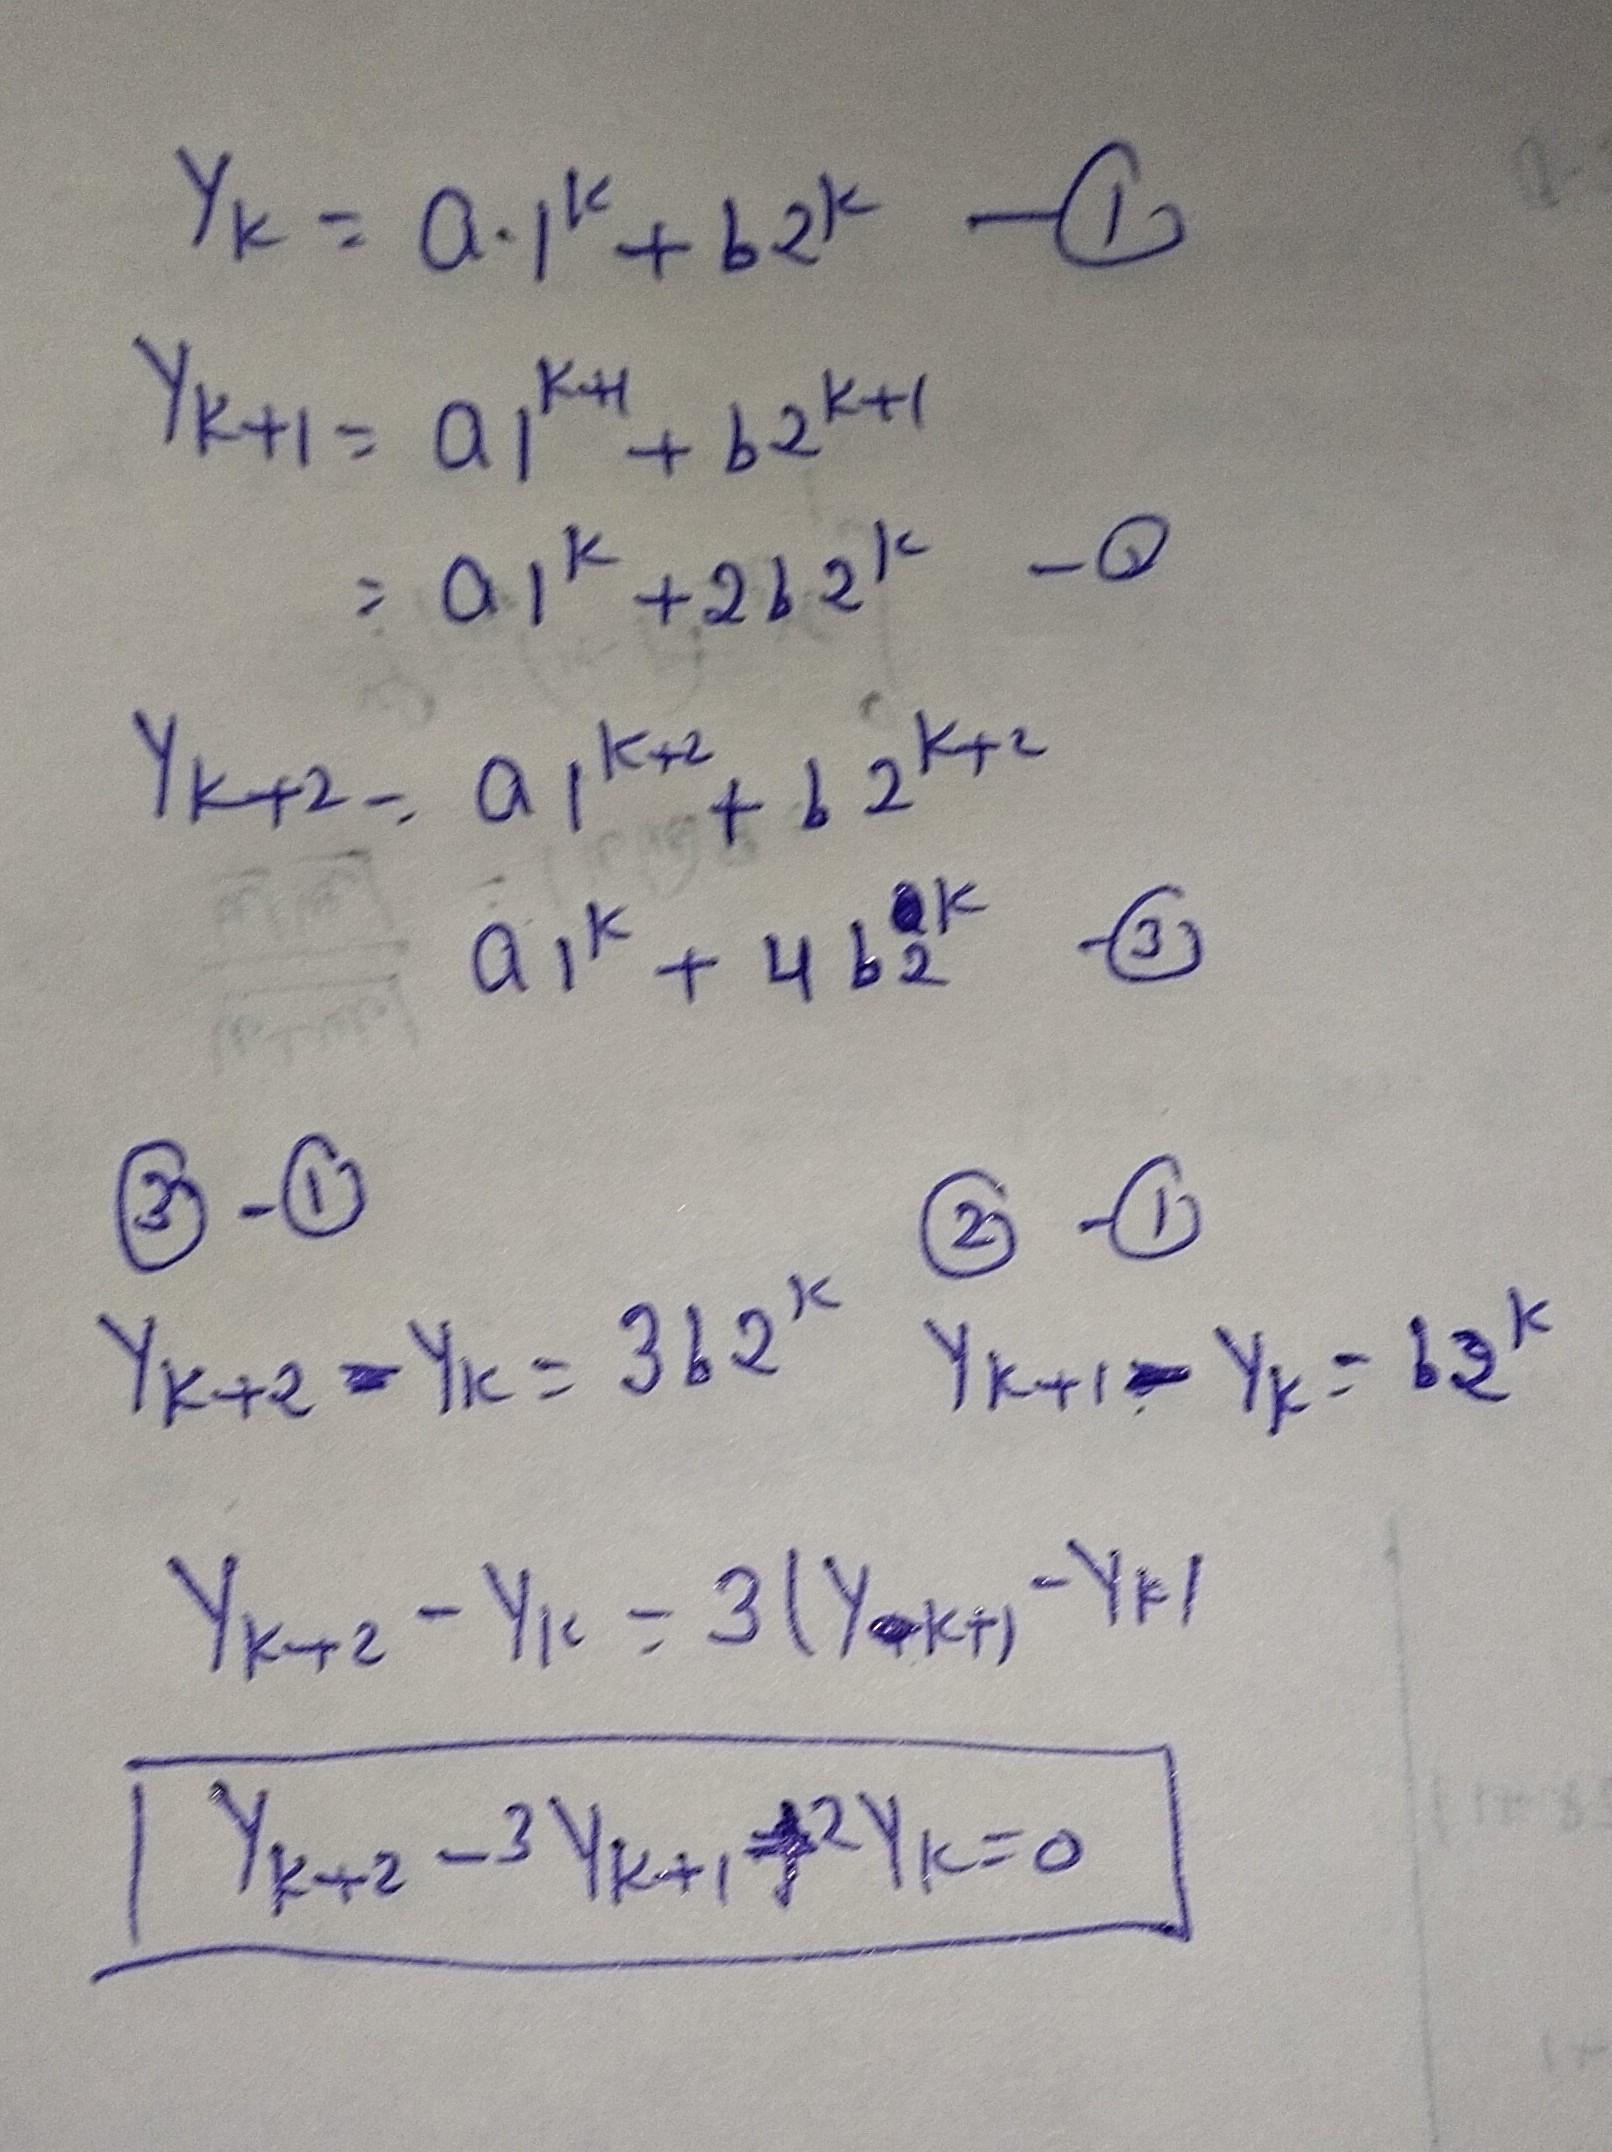 Yₖ = a·1ᵏ + b2ᵏ —①
Yₖ₊₁ = a1ᵏ⁺¹ + b2ᵏ⁺¹
= a1ᵏ + 2b2ᵏ —②
Yₖ₊₂ = a1ᵏ⁺² + b2ᵏ⁺²
a1ᵏ + 4b2ᵏ -③
③ - ① ② - ①
Yₖ₊₂ - Yₖ = 3b2ᵏ Yₖ₊₁ - Yₖ = b2ᵏ
Yₖ₊₂ - Yₖ = 3(Yₖ₊₁ - Yₖ)
Yₖ₊₂ - 3Yₖ₊₁ + 2Yₖ = 0